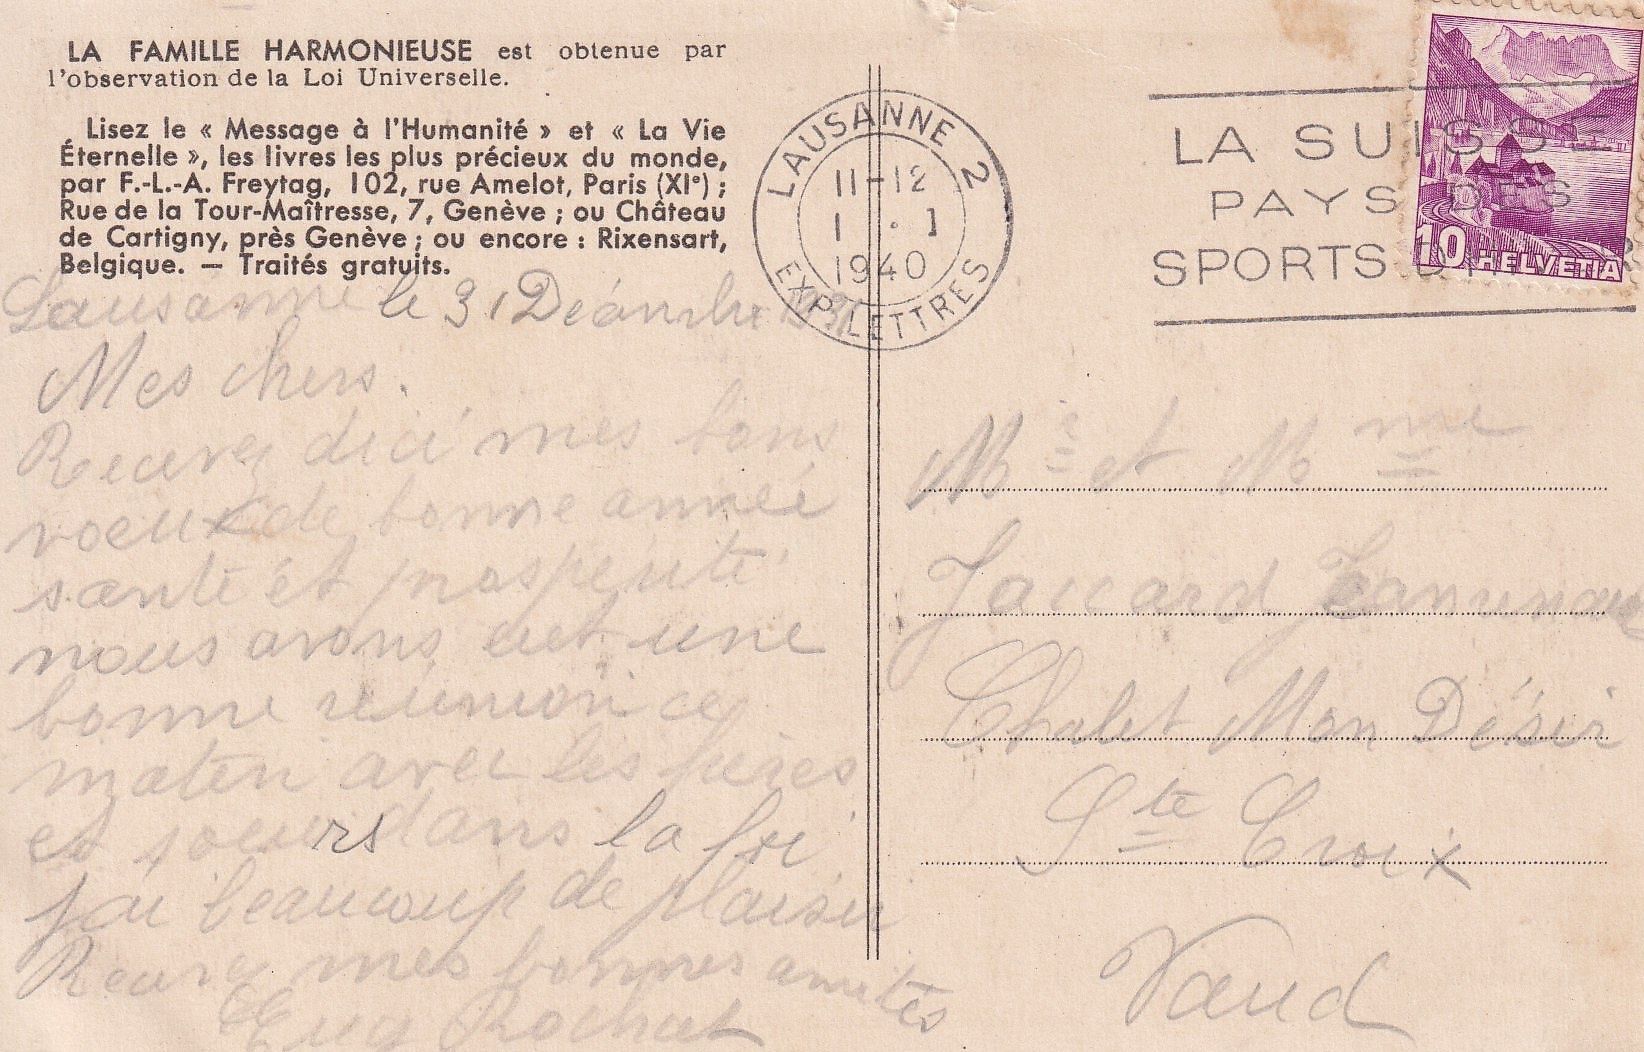 LA FAMILLE HARMONIEUSE est obtenue par
l'observation de la Loi Universelle.
Lisez le « Message à l'Humanité » et « La Vie
Éternelle », les livres les plus précieux du monde,
par F.-L.-A. Freytag, 102, rue Amelot, Paris (XIe) ;
Rue de la Tour-Maîtresse, 7, Genève ; ou Château
de Cartigny, près Genève ; ou encore : Rixensart,
Belgique. — Traités gratuits.
Lausanne le 31 Décembre
Mes chers.
Recevez dici mes bons
voeux de bonne année
santé et prospérité
nous avons eut une
bonne réunion ce
matin avec les frères
et soeurs dans la foi
j'ai beaucoup de plaisir
Recevez mes bonnes amitiés
Eug Rochat
LAUSANNE 2
11-12
1 . I
1940
EXP. LETTRES
LA SUISSE
PAYS DES
SPORTS
10 HELVETIA
Mr et Mme
Jaccard
Chalet Mon Désir
Ste Croix
Vaud